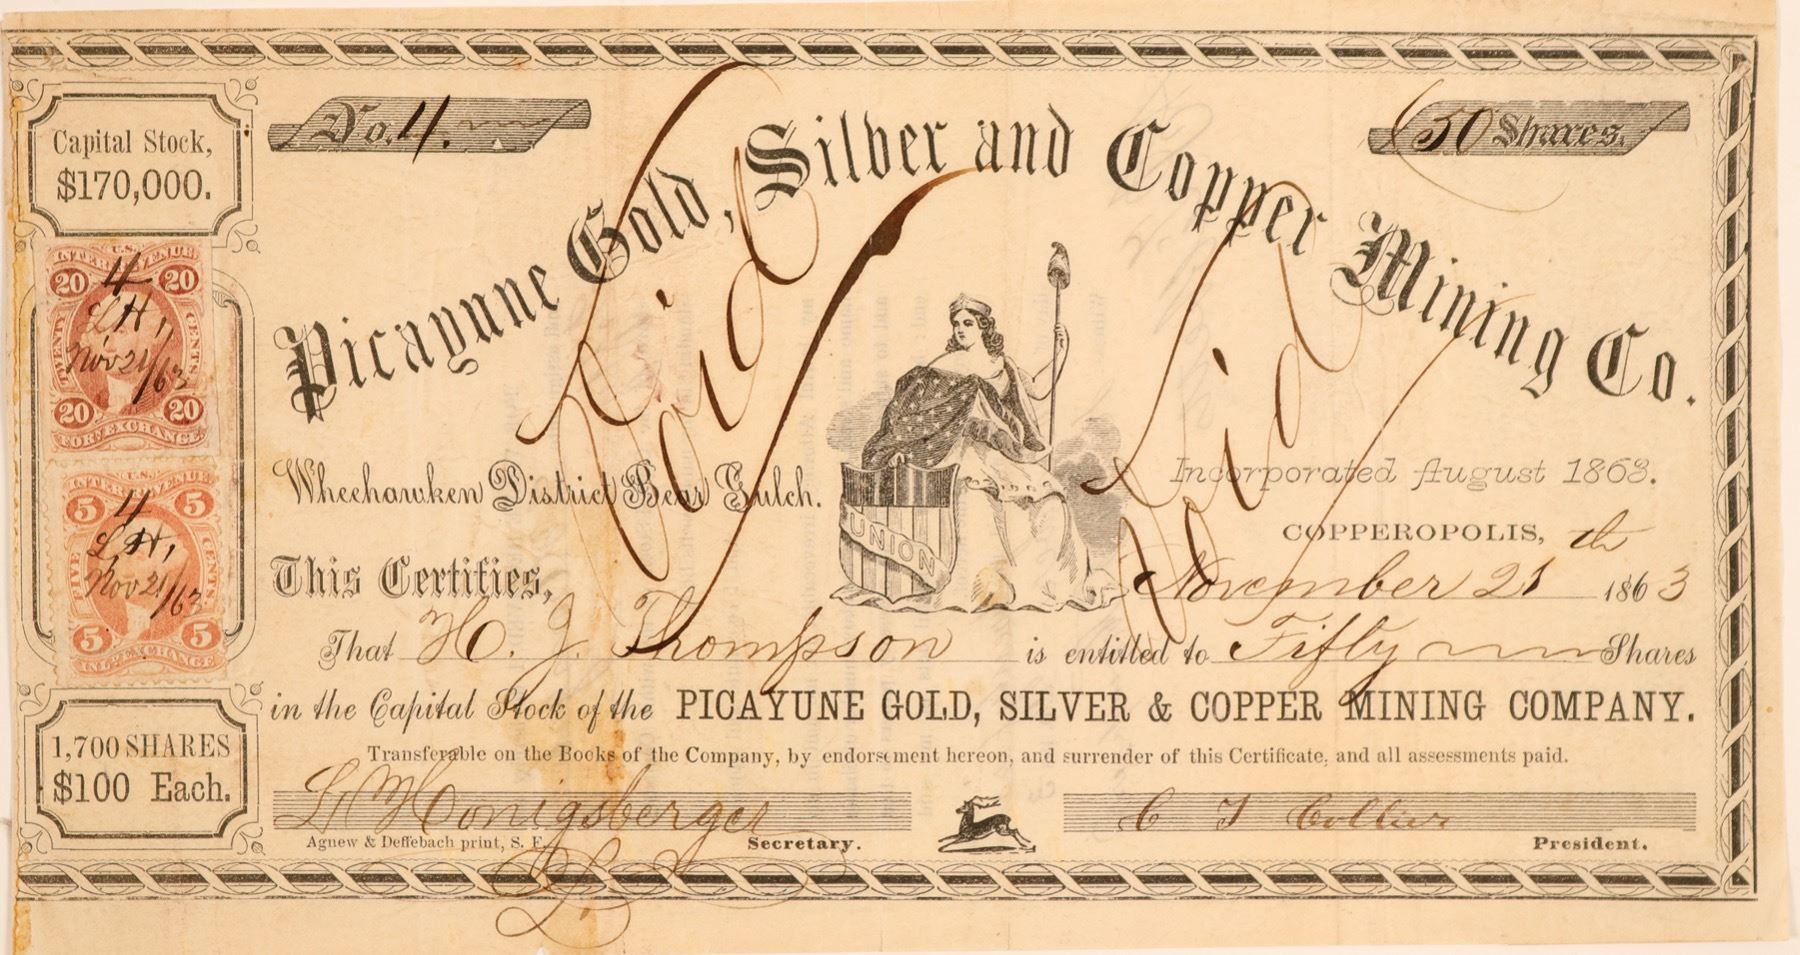 No. 4.
50 Shares.
Capital Stock,
$170,000.
Picayune Gold, Silver and Copper Mining Co.
Void
Void
U.S.
INTER. REVENUE
20 20
TWENTY CENTS
4
L H,
Nov 21/63
20 20
FOR. EXCHANGE
U.S.
INTER. REVENUE
5 5
FIVE CENTS
4
L, H,
Nov 21/63
5 5
INL. EXCHANGE
UNION
Wheehawken District Bear Gulch.
Incorporated August 1863.
COPPEROPOLIS, th
This Certifies,
November 21 1863
That H. J. Thompson is entitled to Fifty Shares
in the Capital Stock of the PICAYUNE GOLD, SILVER & COPPER MINING COMPANY.
Transferable on the Books of the Company, by endorsement hereon, and surrender of this Certificate, and all assessments paid.
1,700 SHARES
$100 Each.
L. Honigsberger
C T Collier
Agnew & Deffebach print, S. F.
Secretary.
President.